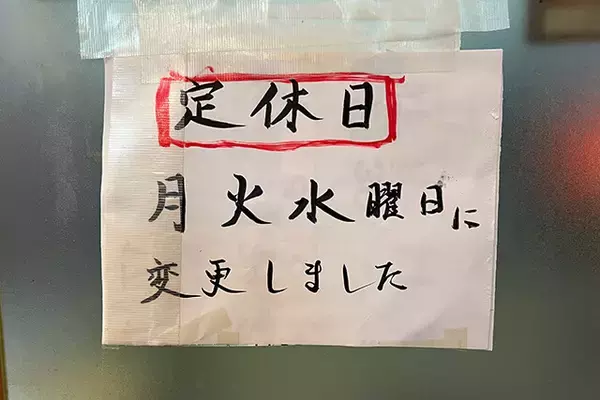 定休日
月火水曜日に
変更しました